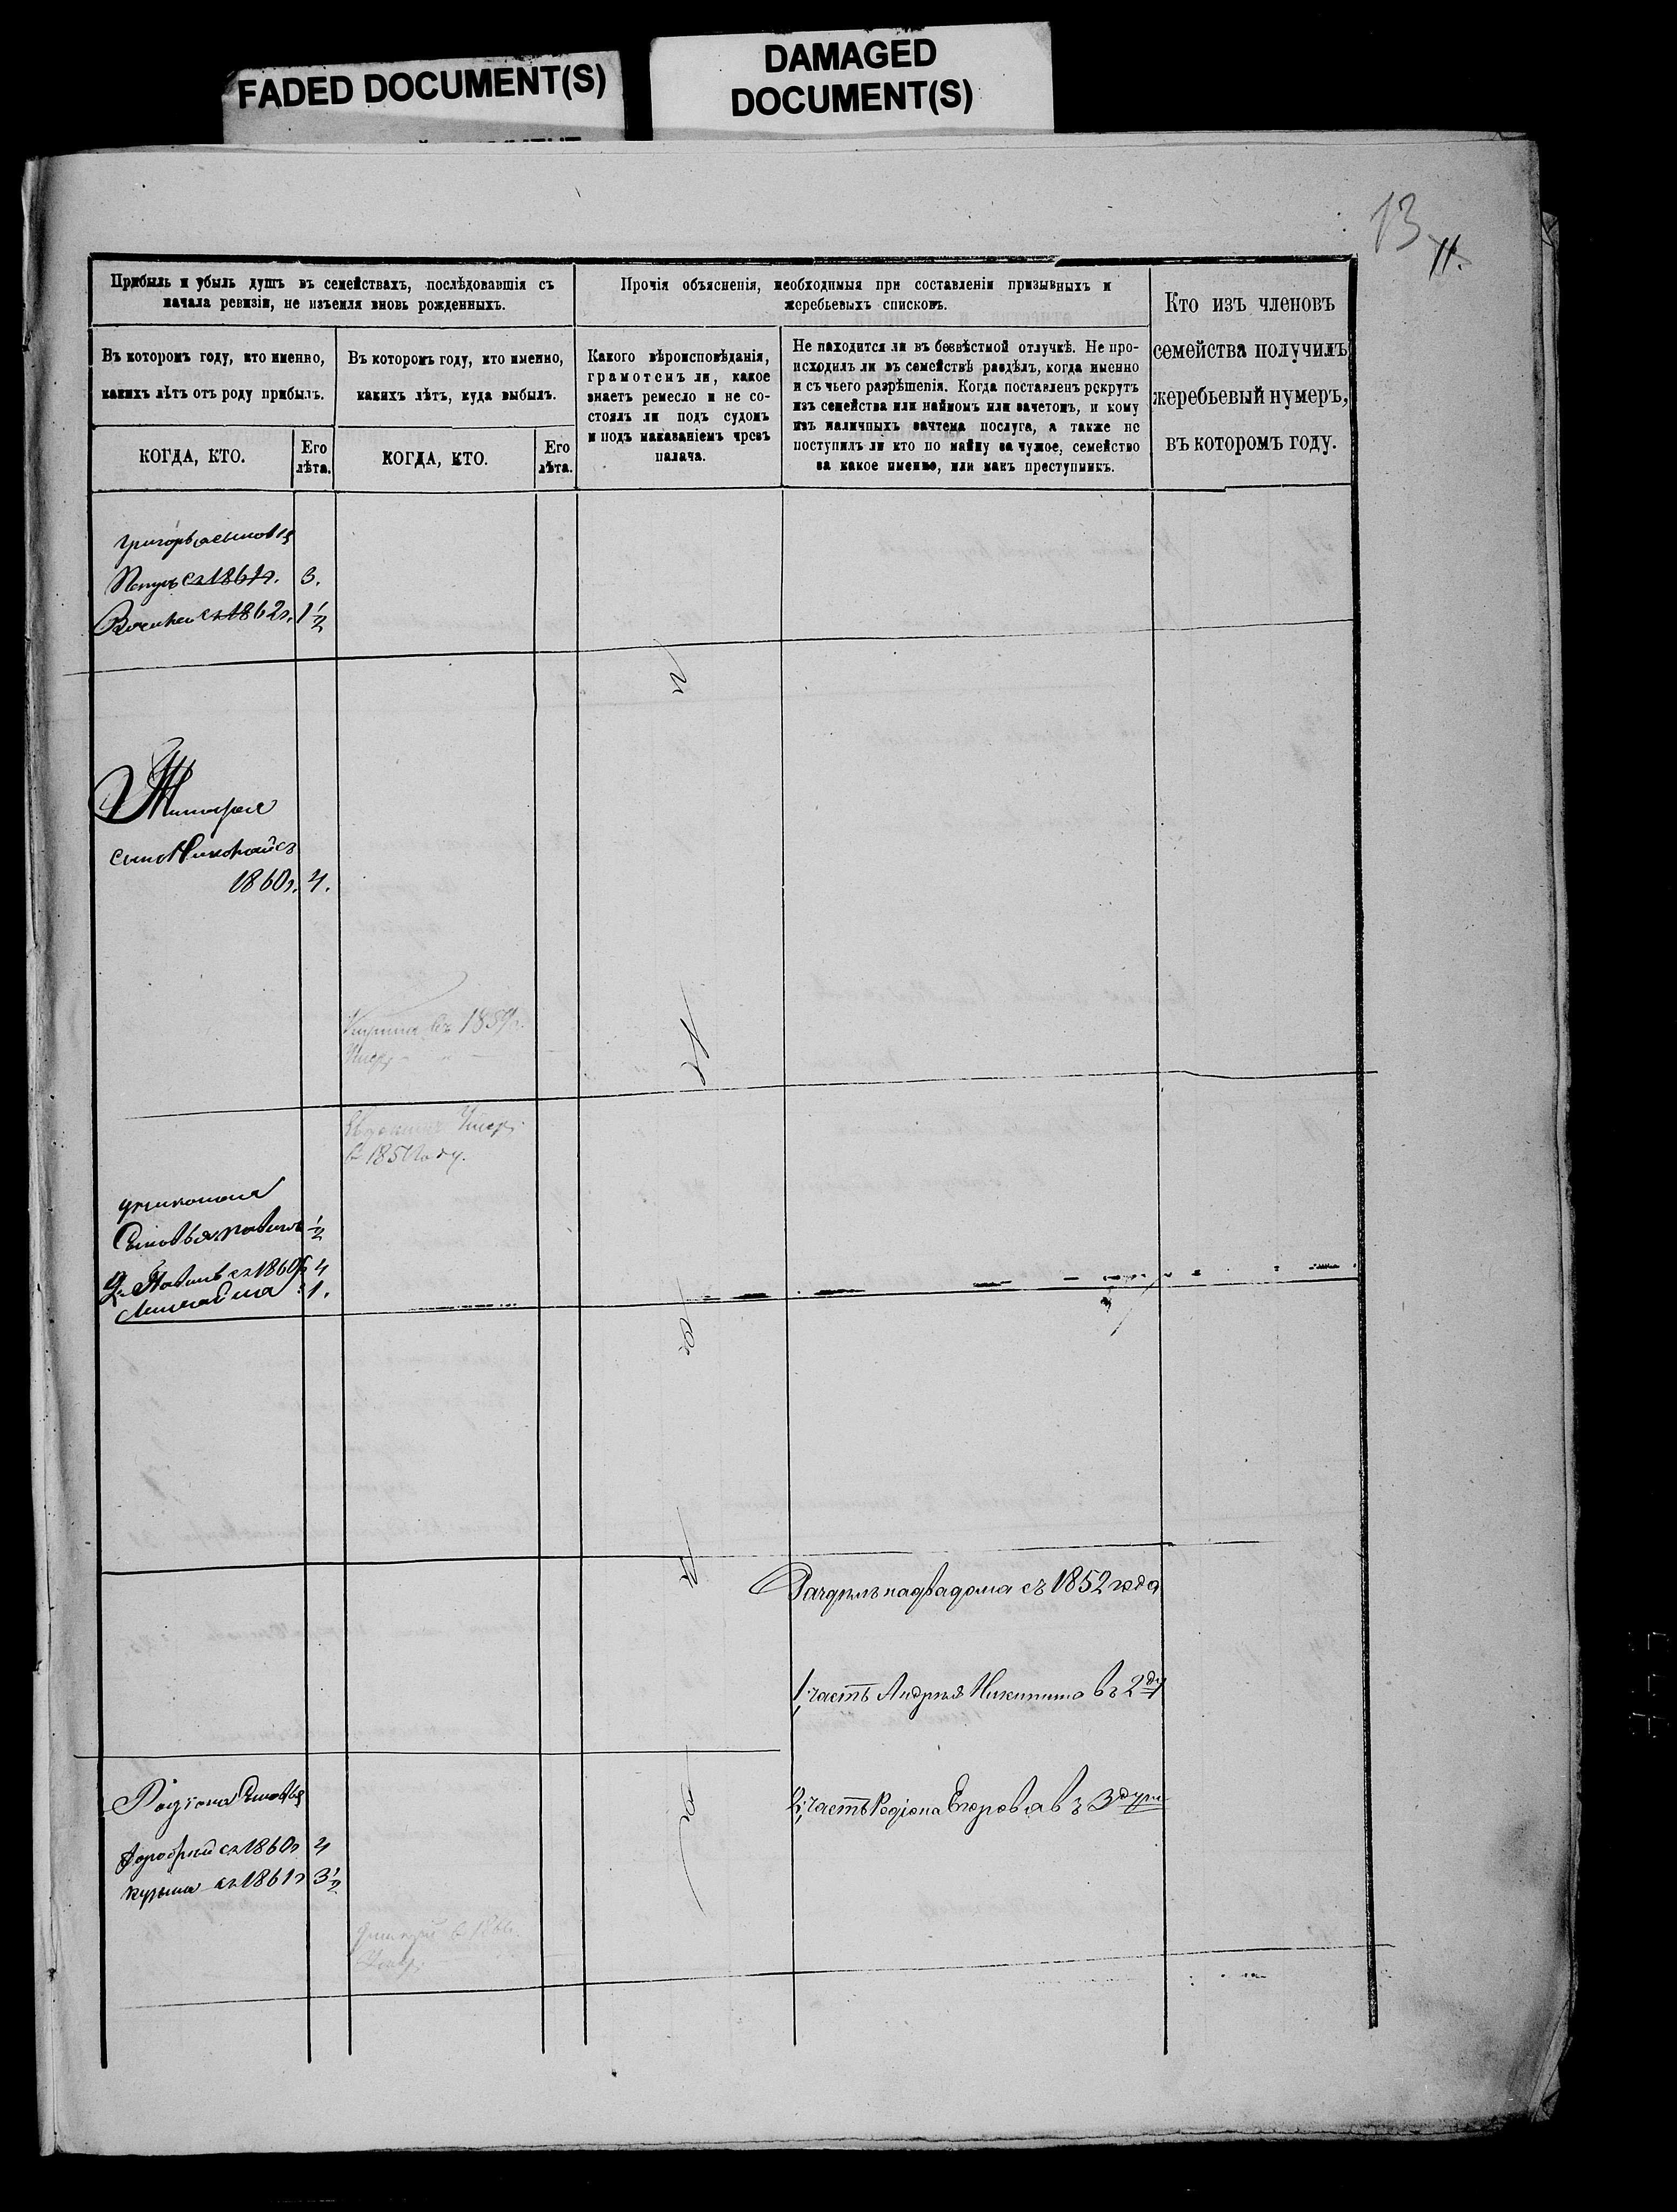 FADED DOCUMENT(S)
DAMAGED
DOCUMENT(S)
13
11.
Прибыль и убыль душъ въ семействахъ, послѣдовавшія съ
начала ревизіи, не изъемля вновь рожденныхъ.
Прочія объясненія, необходимыя при составленіи призывныхъ и
жеребьевыхъ списковъ.
Кто изъ членовъ
семейства получилъ
жеребьевый нумеръ,
въ которомъ году.
Въ которомъ году, кто именно,
какихъ лѣтъ отъ роду прибылъ.
Въ которомъ году, кто именно,
какихъ лѣтъ, куда выбылъ.
Какого вѣроисповѣданія,
грамотенъ ли, какое
знаетъ ремесло и не со-
стоялъ ли подъ судомъ
и подъ наказаніемъ чрезъ
палача.
Не находится ли въ безвѣстной отлучкѣ. Не про-
исходилъ ли въ семействѣ раздѣлъ, когда именно
и съ чьего разрѣшенія. Когда поставленъ рекрутъ
изъ семейства или наймомъ или зачетомъ, и кому
изъ наличныхъ зачтена послуга, а также не
поступилъ ли кто по найму за чужое, семейство
за какое именно, или какъ преступникъ.
КОГДА, КТО.
Его
лѣта.
КОГДА, КТО.
Его
лѣта.
Григорья сыновья
съ 1861г. 3.
Василей съ 1862г. 1½
сынъ Николай съ
1860г. 4.
въ 1859г.
Умер.
в 185 году.
Сыновья ½
2й съ 1860г 4
1.
Раздѣлъ на два дома съ 1852 года
1. часть Андрея Никитина въ 2 ду
Родіона Сыновья
2. часть Родіона Егорова въ 3 души
Дорофѣй съ 1860г 4
Кузьма съ 1861г 3½